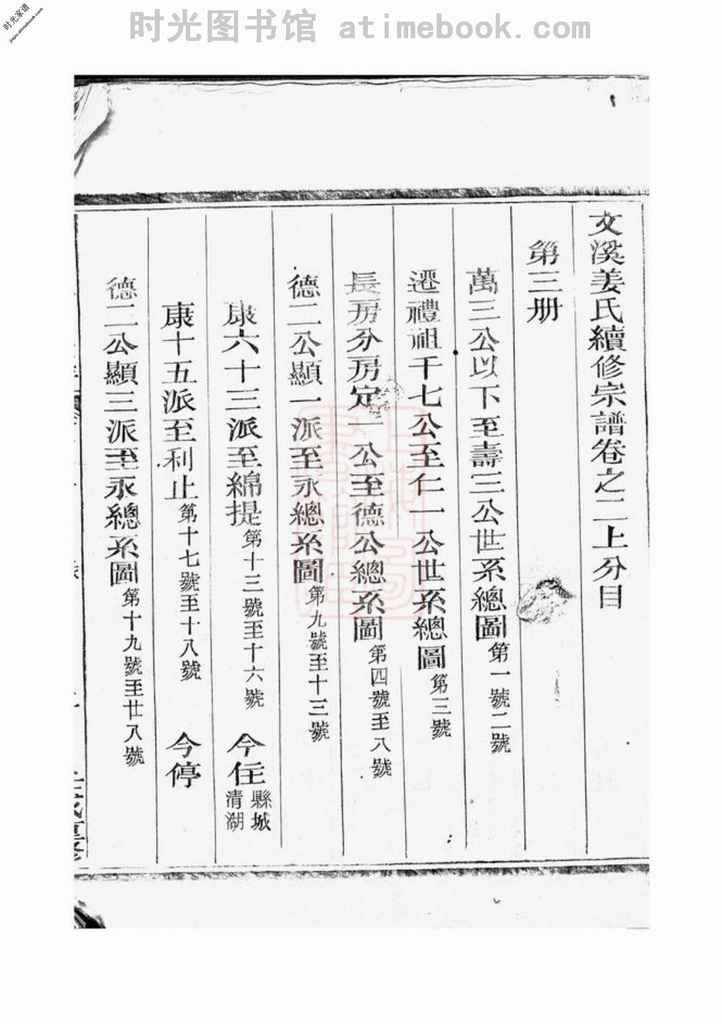 时光图书馆 atimebook.com
时光家谱
jiapu.atimebook.com
文溪姜氏續修宗譜卷之二上分目
第三册
萬三公以下至壽三公世系總圖第一號二號
遷禮祖千七公至仁一公世系總圖第三號
長房分房定一公至德公總系圖第四號至八號
德二公顯一派至永總系圖第九號至十三號
康六十三派至綿提第十三號至十六號 今住縣城清湖
康十五派至利止第十七號至十八號 今停
德二公顯三派至永總系圖第十九號至廿八號